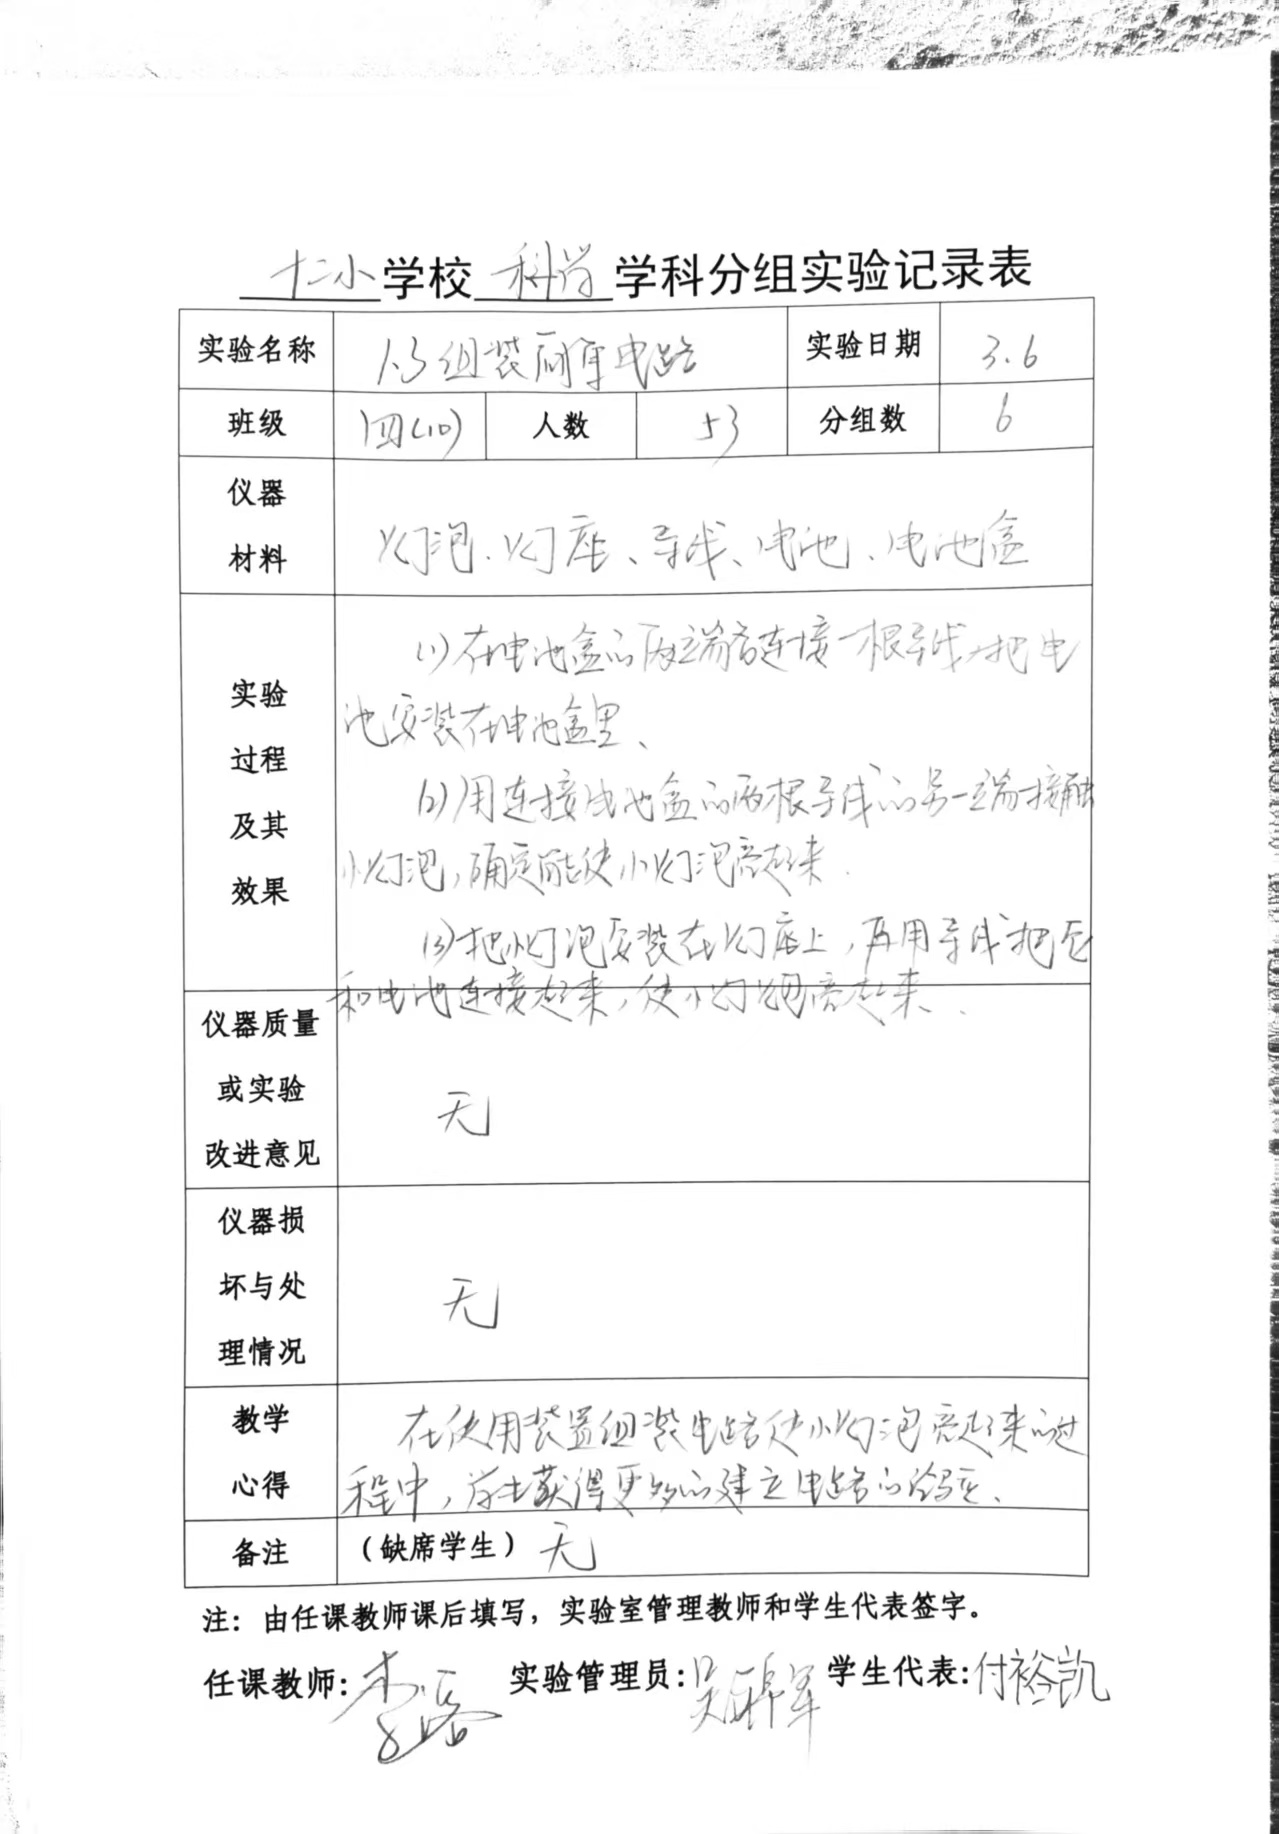 十二小学校 科学 学科分组实验记录表
实验名称 1.3组装简单电路 实验日期 3.6
班级 四(10) 人数 53 分组数 6
仪器
材料
灯泡、灯座、导线、电池、电池盒
实验
过程
及其
效果
(1)在电池盒的两端各连接一根导线,把电
池安装在电池盒里、
(2)用连接电池盒的两根导线的另一端接触
小灯泡,确定能使小灯泡亮起来.
(3)把小灯泡安装在灯座上,再用导线把它
和电池连接起来,使小灯泡亮起来、
仪器质量
或实验
改进意见
无
仪器损
坏与处
理情况
无
教学
心得
在使用装置组装电路使小灯泡亮起来的过
程中,学生获得更多的建立电路的经验、
备注 (缺席学生) 无
注:由任课教师课后填写,实验室管理教师和学生代表签字。
任课教师:李 实验管理员:吴 军 学生代表:付裕凯